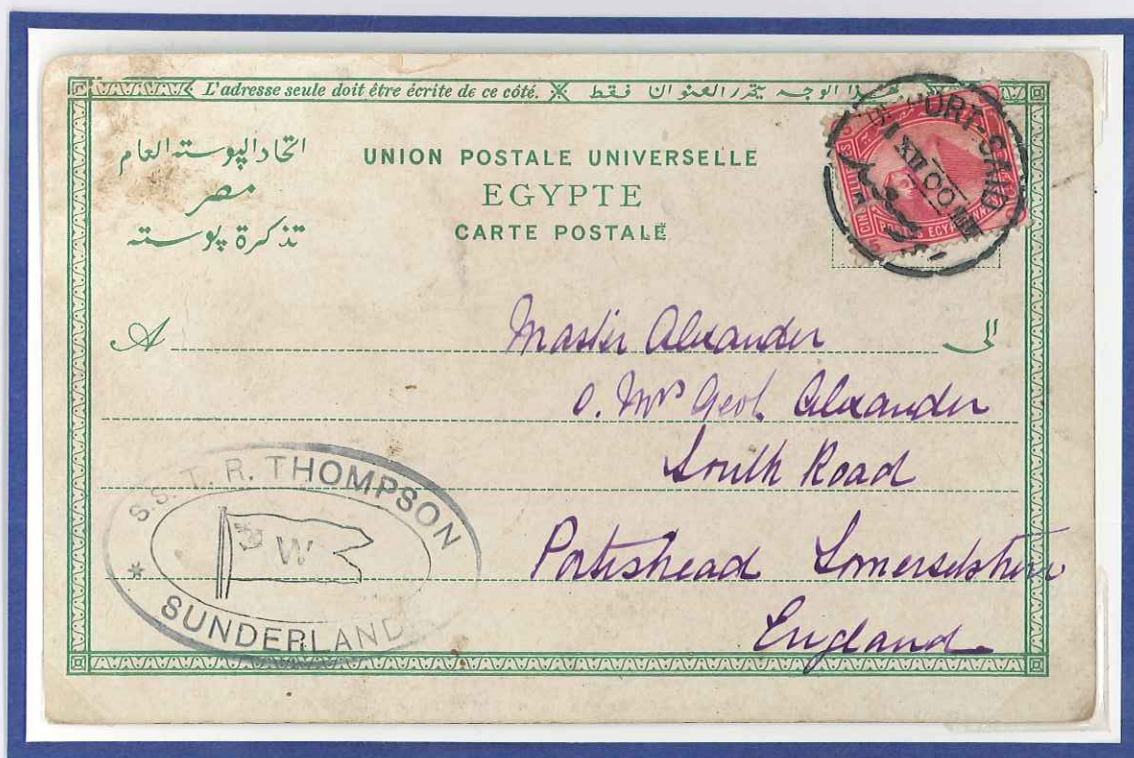 L'adresse seule doit être écrite de ce côté. هذا الوجه يحرر العنوان فقط
اتحاد البوسته العام
مصر
تذكرة بوسته
UNION POSTALE UNIVERSELLE
EGYPTE
CARTE POSTALE
PORT-SAID
XII 00
A الى
Master Alexander
Mrs Geo. Alexander
South Road
Portishead Somersetshire
England
S.S. T. R. THOMPSON
W
SUNDERLAND